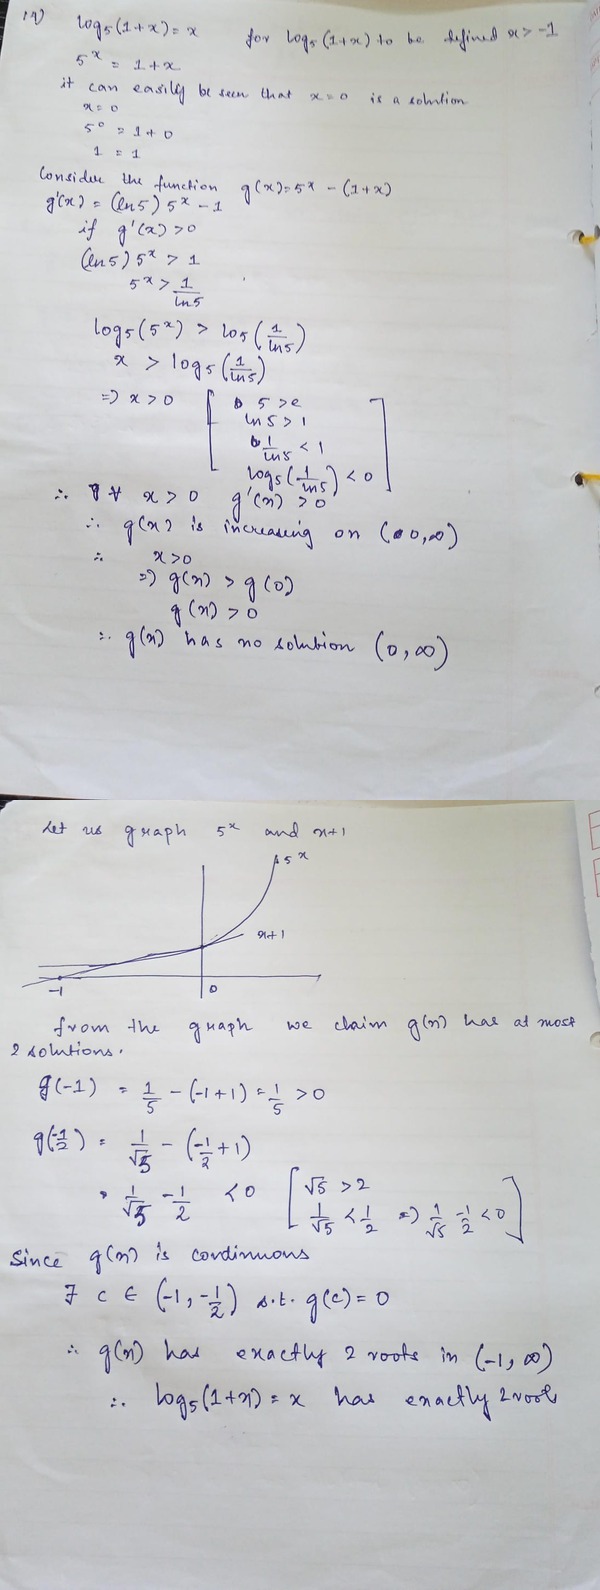 iv) log₅(1+x) = x for log₅(1+x) to be defined x > -1
5ˣ = 1+x
it can easily be seen that x=0 is a solution
x=0
5⁰ = 1+0
1 = 1
Consider the function g(x) = 5ˣ - (1+x)
g'(x) = (ln5) 5ˣ - 1
if g'(x) > 0
(ln5) 5ˣ > 1
5ˣ > 1/ln5
log₅(5ˣ) > log₅(1/ln5)
x > log₅(1/ln5)
=> x > 0 [ 5 > e
ln5 > 1
1/ln5 < 1
log₅(1/ln5) < 0 ]
∴ ∀ x > 0 g'(x) > 0
∴ g(x) is increasing on (0,∞)
∴ x > 0
=> g(x) > g(0)
g(x) > 0
∴ g(x) has no solution (0,∞)
Let us graph 5ˣ and x+1
5ˣ
x+1
-1 0
from the graph we claim g(x) has at most
2 solutions.
g(-1) = 1/5 - (-1+1) = 1/5 > 0
g(-1/2) = 1/√5 - (-1/2+1)
= 1/√5 - 1/2 < 0 [ √5 > 2
1/√5 < 1/2 => 1/√5 - 1/2 < 0 ]
Since g(x) is continuous
∃ c ∈ (-1, -1/2) s.t. g(c) = 0
∴ g(x) has exactly 2 roots in (-1,∞)
∴ log₅(1+x) = x has exactly 2 roots